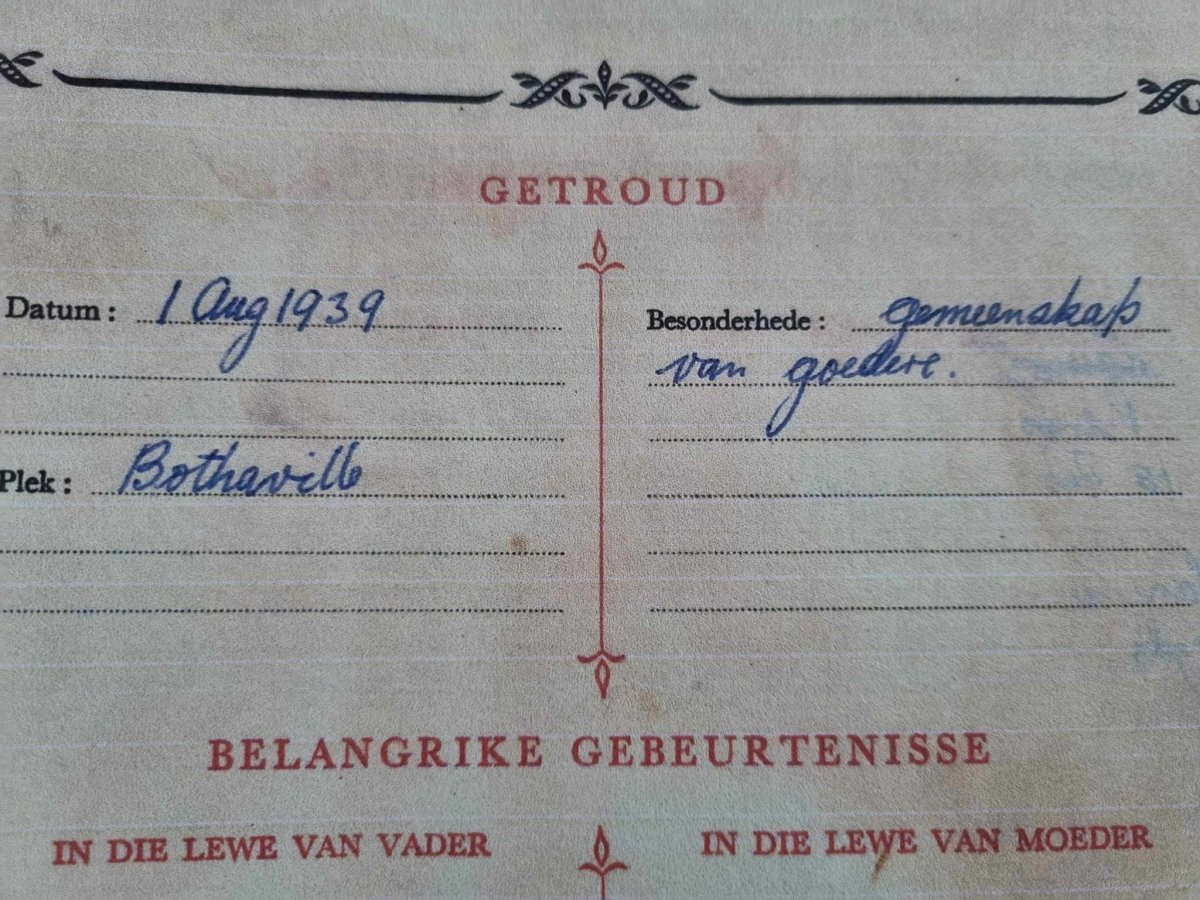 GETROUD
Datum : 1 Aug 1939
Besonderhede : gemeenskap
van goedere.
Plek : Bothaville
BELANGRIKE GEBEURTENISSE
IN DIE LEWE VAN VADER
IN DIE LEWE VAN MOEDER